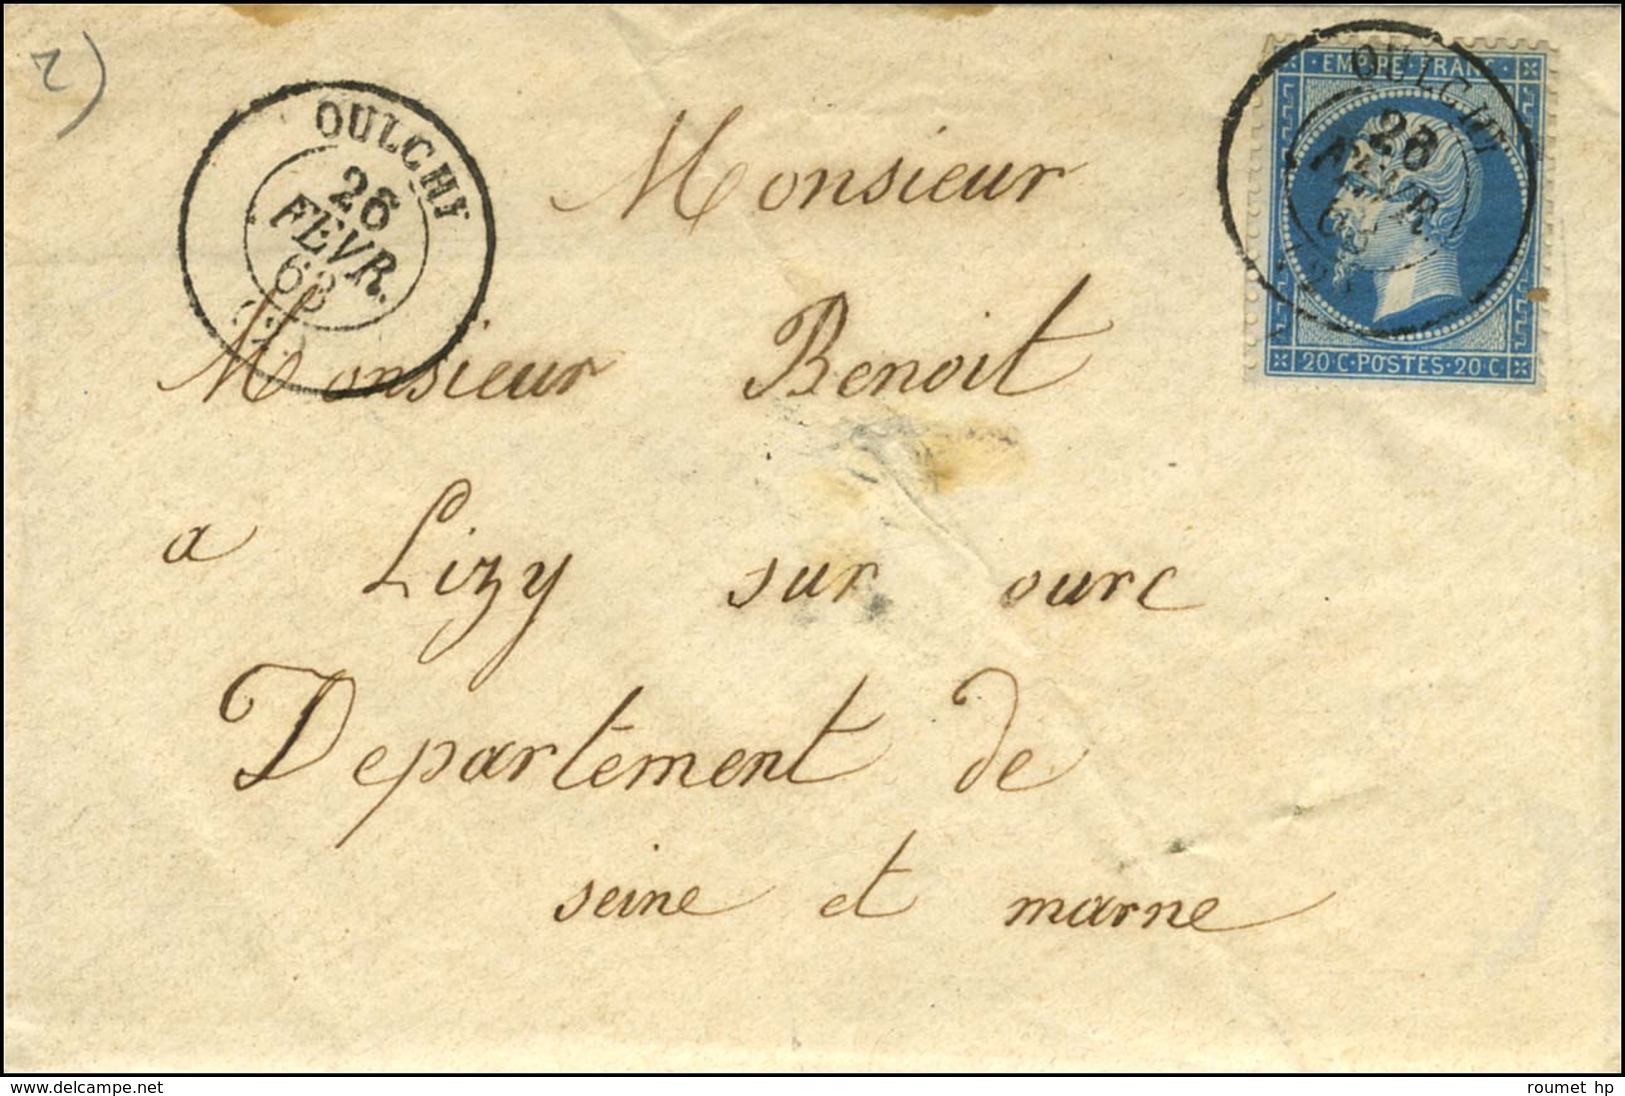 2)
OULCHY
26
FEVR.
63
OULCHY
26
FEVR.
63
EMPIRE·FRANC
20·C·POSTES·20·C
Monsieur
Monsieur Benoit
a Lizy sur ourc
Departement de
seine et marne
www.delcampe.net
roumet hp